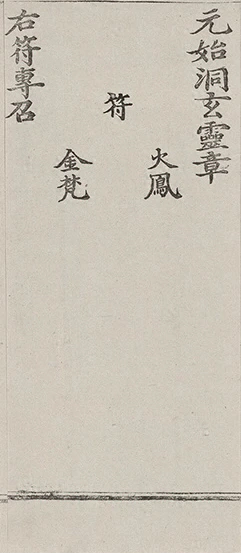 元始洞玄靈章
火鳳
符
金梵
右符專召